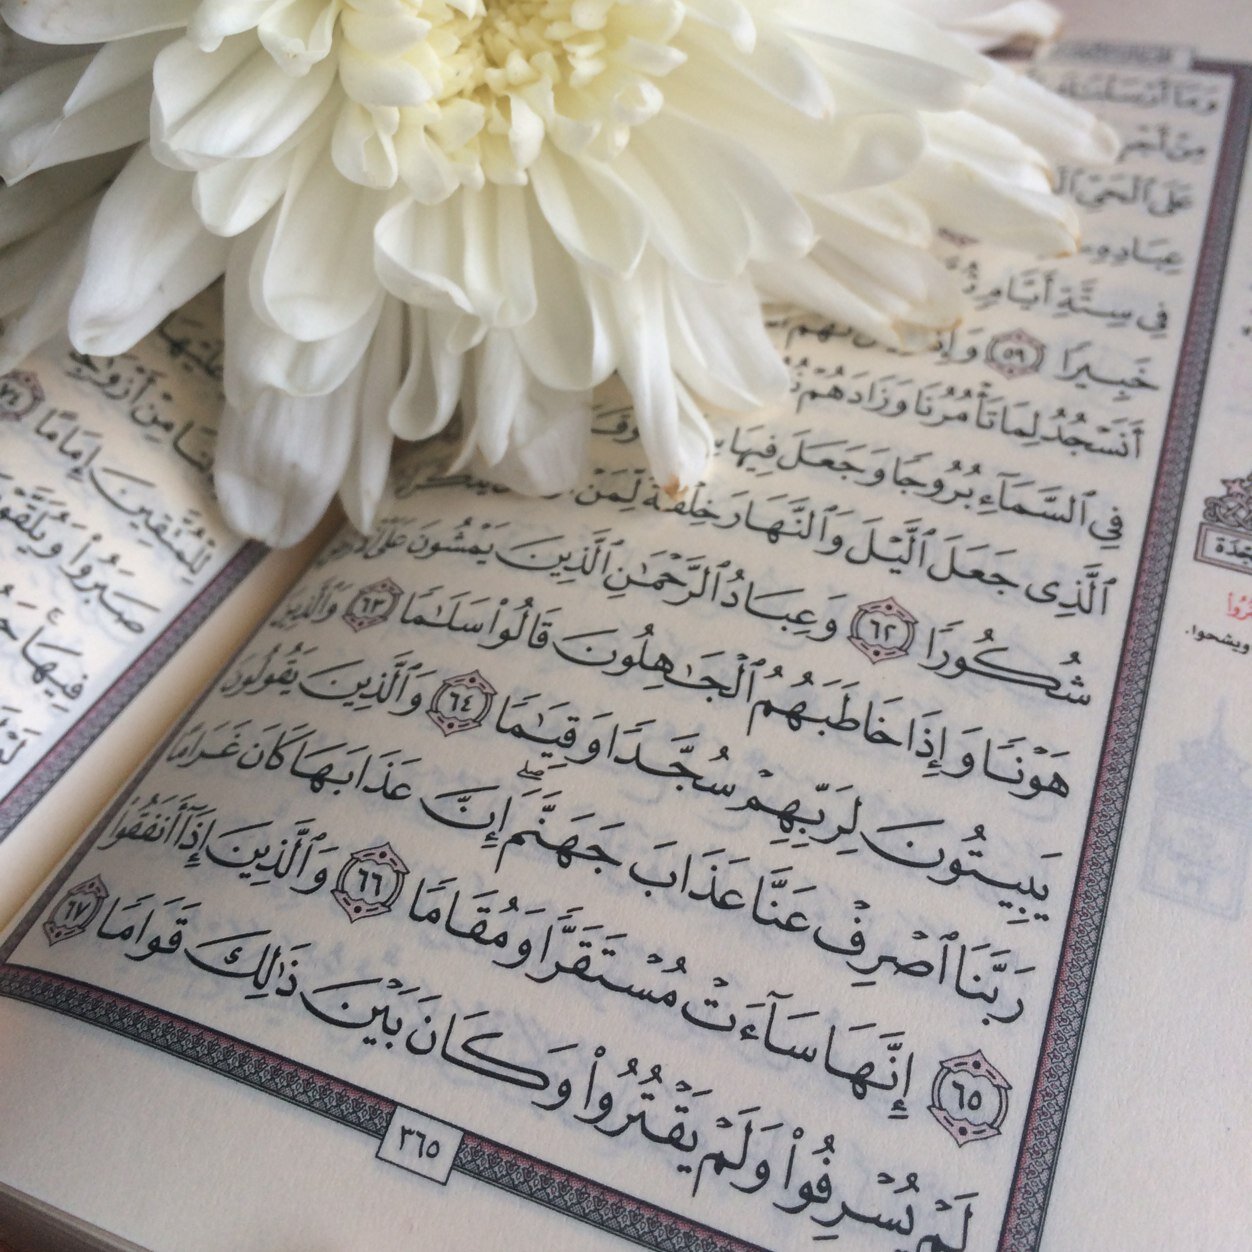 وَمَآ أَرْسَلْنَٰكَ
مِنْ أَجْرٍ
عَلَى ٱلْحَىِّ
عِبَادِهِۦ
فِى سِتَّةِ أَيَّامٍ
خَبِيرًا ٥٩
أَنَسْجُدُ لِمَا تَأْمُرُنَا وَزَادَهُمْ
فِى ٱلسَّمَآءِ بُرُوجًا وَجَعَلَ فِيهَا
ٱلَّذِى جَعَلَ ٱلَّيْلَ وَٱلنَّهَارَ خِلْفَةً لِّمَنْ
شُكُورًا ٦٢ وَعِبَادُ ٱلرَّحْمَٰنِ ٱلَّذِينَ يَمْشُونَ عَلَى
هَوْنًا وَإِذَا خَاطَبَهُمُ ٱلْجَٰهِلُونَ قَالُوا۟ سَلَٰمًا ٦٣ وَٱلَّذِينَ
يَبِيتُونَ لِرَبِّهِمْ سُجَّدًا وَقِيَٰمًا ٦٤ وَٱلَّذِينَ يَقُولُونَ
رَبَّنَا ٱصْرِفْ عَنَّا عَذَابَ جَهَنَّمَ ۖ إِنَّ عَذَابَهَا كَانَ غَرَامًا
٦٥ إِنَّهَا سَآءَتْ مُسْتَقَرًّا وَمُقَامًا ٦٦ وَٱلَّذِينَ إِذَآ أَنفَقُوا۟
لَمْ يُسْرِفُوا۟ وَلَمْ يَقْتُرُوا۟ وَكَانَ بَيْنَ ذَٰلِكَ قَوَامًا ٦٧
٣٦٥
ويشحوا.
مِنْ أَزْوَٰجِنَا
لِلْمُتَّقِينَ إِمَامًا ٧٤
صَبَرُوا۟ وَيُلَقَّوْنَ
فِيهَا ۚ